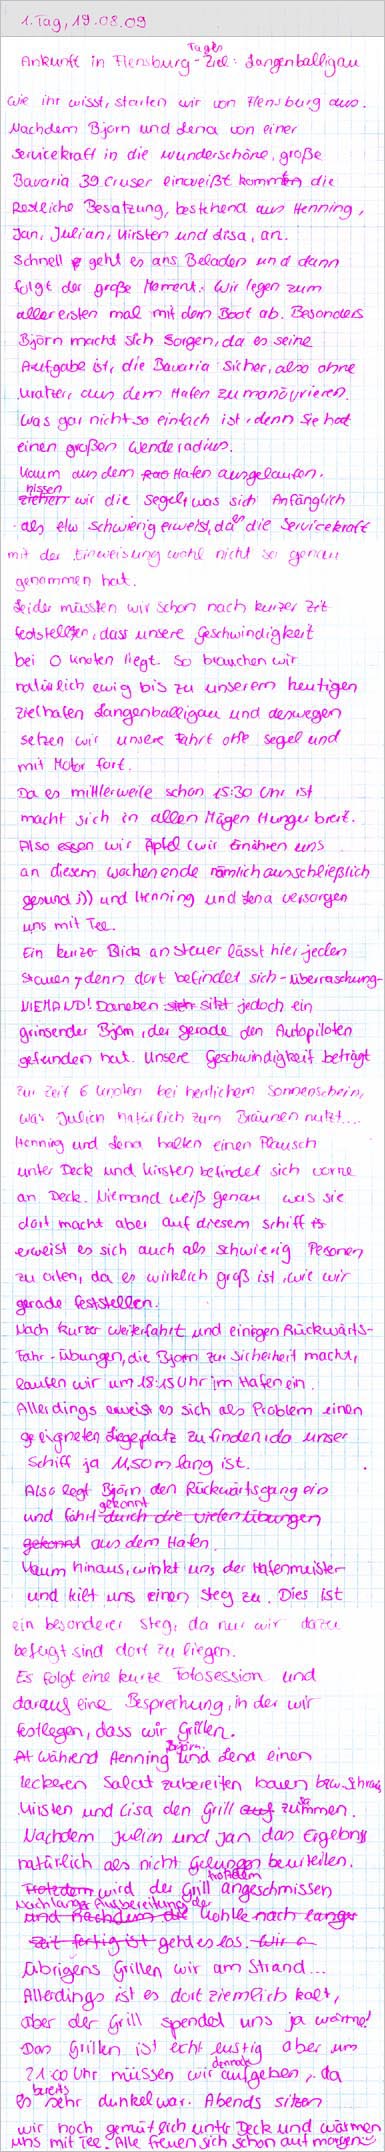 1. Tag, 19.08.09
Ankunft in Flensburg - Tages Ziel: Langenballigau
Wie ihr wisst, starten wir von Flensburg aus.
Nachdem Björn und Lena von einer
Servicekraft in die wunderschöne, große
Bavaria 39 Cruser einweißt kommten die
Restliche Besatzung, bestehend aus Henning,
Jan, Julian, Kirsten und Lisa, an.
Schnell geht es ans Beladen und dann
folgt der große Moment: Wir legen zum
aller ersten mal mit dem Boot ab. Besonders
Björn macht sich Sorgen, da es seine
Aufgabe ist, die Bavaria sicher, also ohne
Kratzer, aus dem Hafen zu manövrieren.
Was gar nicht so einfach ist, denn Sie hat
einen großen Wenderadius.
Kaum aus dem Hafen ausgelaufen,
hissen
ziehen wir die Segel, was sich Anfänglich
als etw schwierig erweist, da es die Servicekraft
mit der Einweisung wohl nicht so genau
genommen hat.
Leider müssten wir schon nach kurzer Zit
feststellen, dass unsere Geschwindigkeit
bei 0 Knoten liegt. So brauchen wir
natürlich ewig bis zu unserem heutigen
Zielhafen Langenballigau und deswegen
setzen wir unsere Fahrt ohe Segel und
mit Motor fort.
Da es mittlerweile schon 15:30 Uhr ist
macht sich in allen Mägen Hunger breit.
Also essen wir Äpfel (wir Ernähren uns
an diesem Wochenende nämlich ausschließlich
gesund ;)) und Henning und Lena versorgen
uns mit Tee.
Ein kurzer Blick an Steuer lässt hier jeden
Stauen, denn dort befindet sich - überraschung -
NIEMAND! Daneben sieh sitzt jedoch ein
grinsender Björn, der gerade den Autopiloten
gefunden hat. Unsere Geschwindigkeit beträgt
zur Zeit 6 Knoten bei herrlichem Sonnenschein,
was Julian natürlich zum Bräunen nutzt....
Henning und Lena halten einen Plausch
unter Deck und Kirsten befindet sich vorne
an Deck. Niemand weiß genau was sie
dort macht aber auf diesem Schiff is
erweist es sich auch als schwierig Personen
zu orten, da es wirklich groß ist, wie wir
gerade feststellen.
Nach kurzer Weiterfahrt und einigen Rückwärts-
Fahr-Übungen, die Björn zur Sicherheit macht,
laufen wir um 18:15 Uhr im Hafen ein.
Allerdings erweist es sich als Problem einen
geeigneten Liegeplatz zu finden, da unser
Schiff ja 11,50 m lang ist.
Also legt Björn den Rückwärtsgang ein
gekonnt
und fährt durch die vielen Übungen
gekonnt aus dem Hafen.
Kaum hinaus, winkt uns der Hafenmeister
und teilt uns einen Steg zu. Dies ist
ein besonderer Steg, da nur wir dazu
befugt sind dort zu liegen.
Es folgt eine kurze Fotosession und
darauf eine Besprechung, in der wir
festlegen, dass wir Grillen.
Björn
Während Henning und Lena einen
leckeren Salat zubereiten bauen bzw. Schraub
Kirsten und Lisa den Grill auf zusammen.
Nachdem Julian und Jan das Ergebnis
natürlich als nicht Gelungen beurteilen.
trotzdem
Trotzdem wird der Grill angeschmissen
Nach langer Ausbereitung der
und nachdem die Kohle nach langer
Zeit fertig ist geht es los. Wir
Übrigens Grillen wir am Strand...
Allerdings ist es dort ziemlich kalt,
aber der Grill spendet uns ja wärme!
Das Grillen ist echt lustig aber um
21:00 Uhr müssen wir aufgeben, da
bereits
es sehr dunkel war. Abends sitzen
wir noch gemütlich unter Deck und wärmen
uns mit Tee. Alle freuen sich schon auf morgen